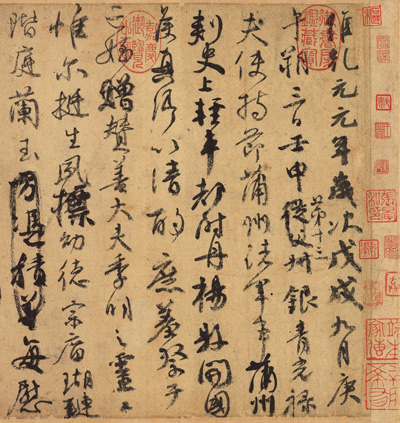 維乾元元年歲次戊戌九月庚
午朔三日壬申第十三從父叔銀青光祿
夫使持節蒲州諸軍事蒲州
刺史上輕車都尉丹楊縣開國
侯真卿以清酌庶羞祭于
亡姪贈贊善大夫季明之靈曰
惟爾挺生夙標幼德宗廟瑚璉
階庭蘭玉方憑積善每慰